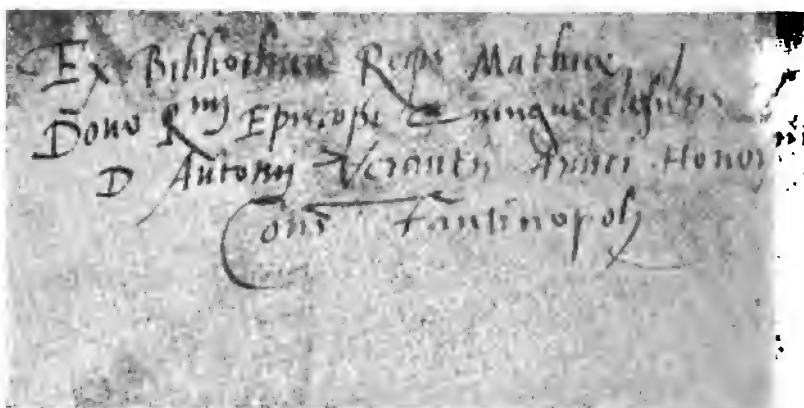 Ex Bibliotheca Regis Mathiæ
Dono R^mi Episcopi Quinqueecclesiensis
D Antonij Verantij Amici Honor
Constantinopoli